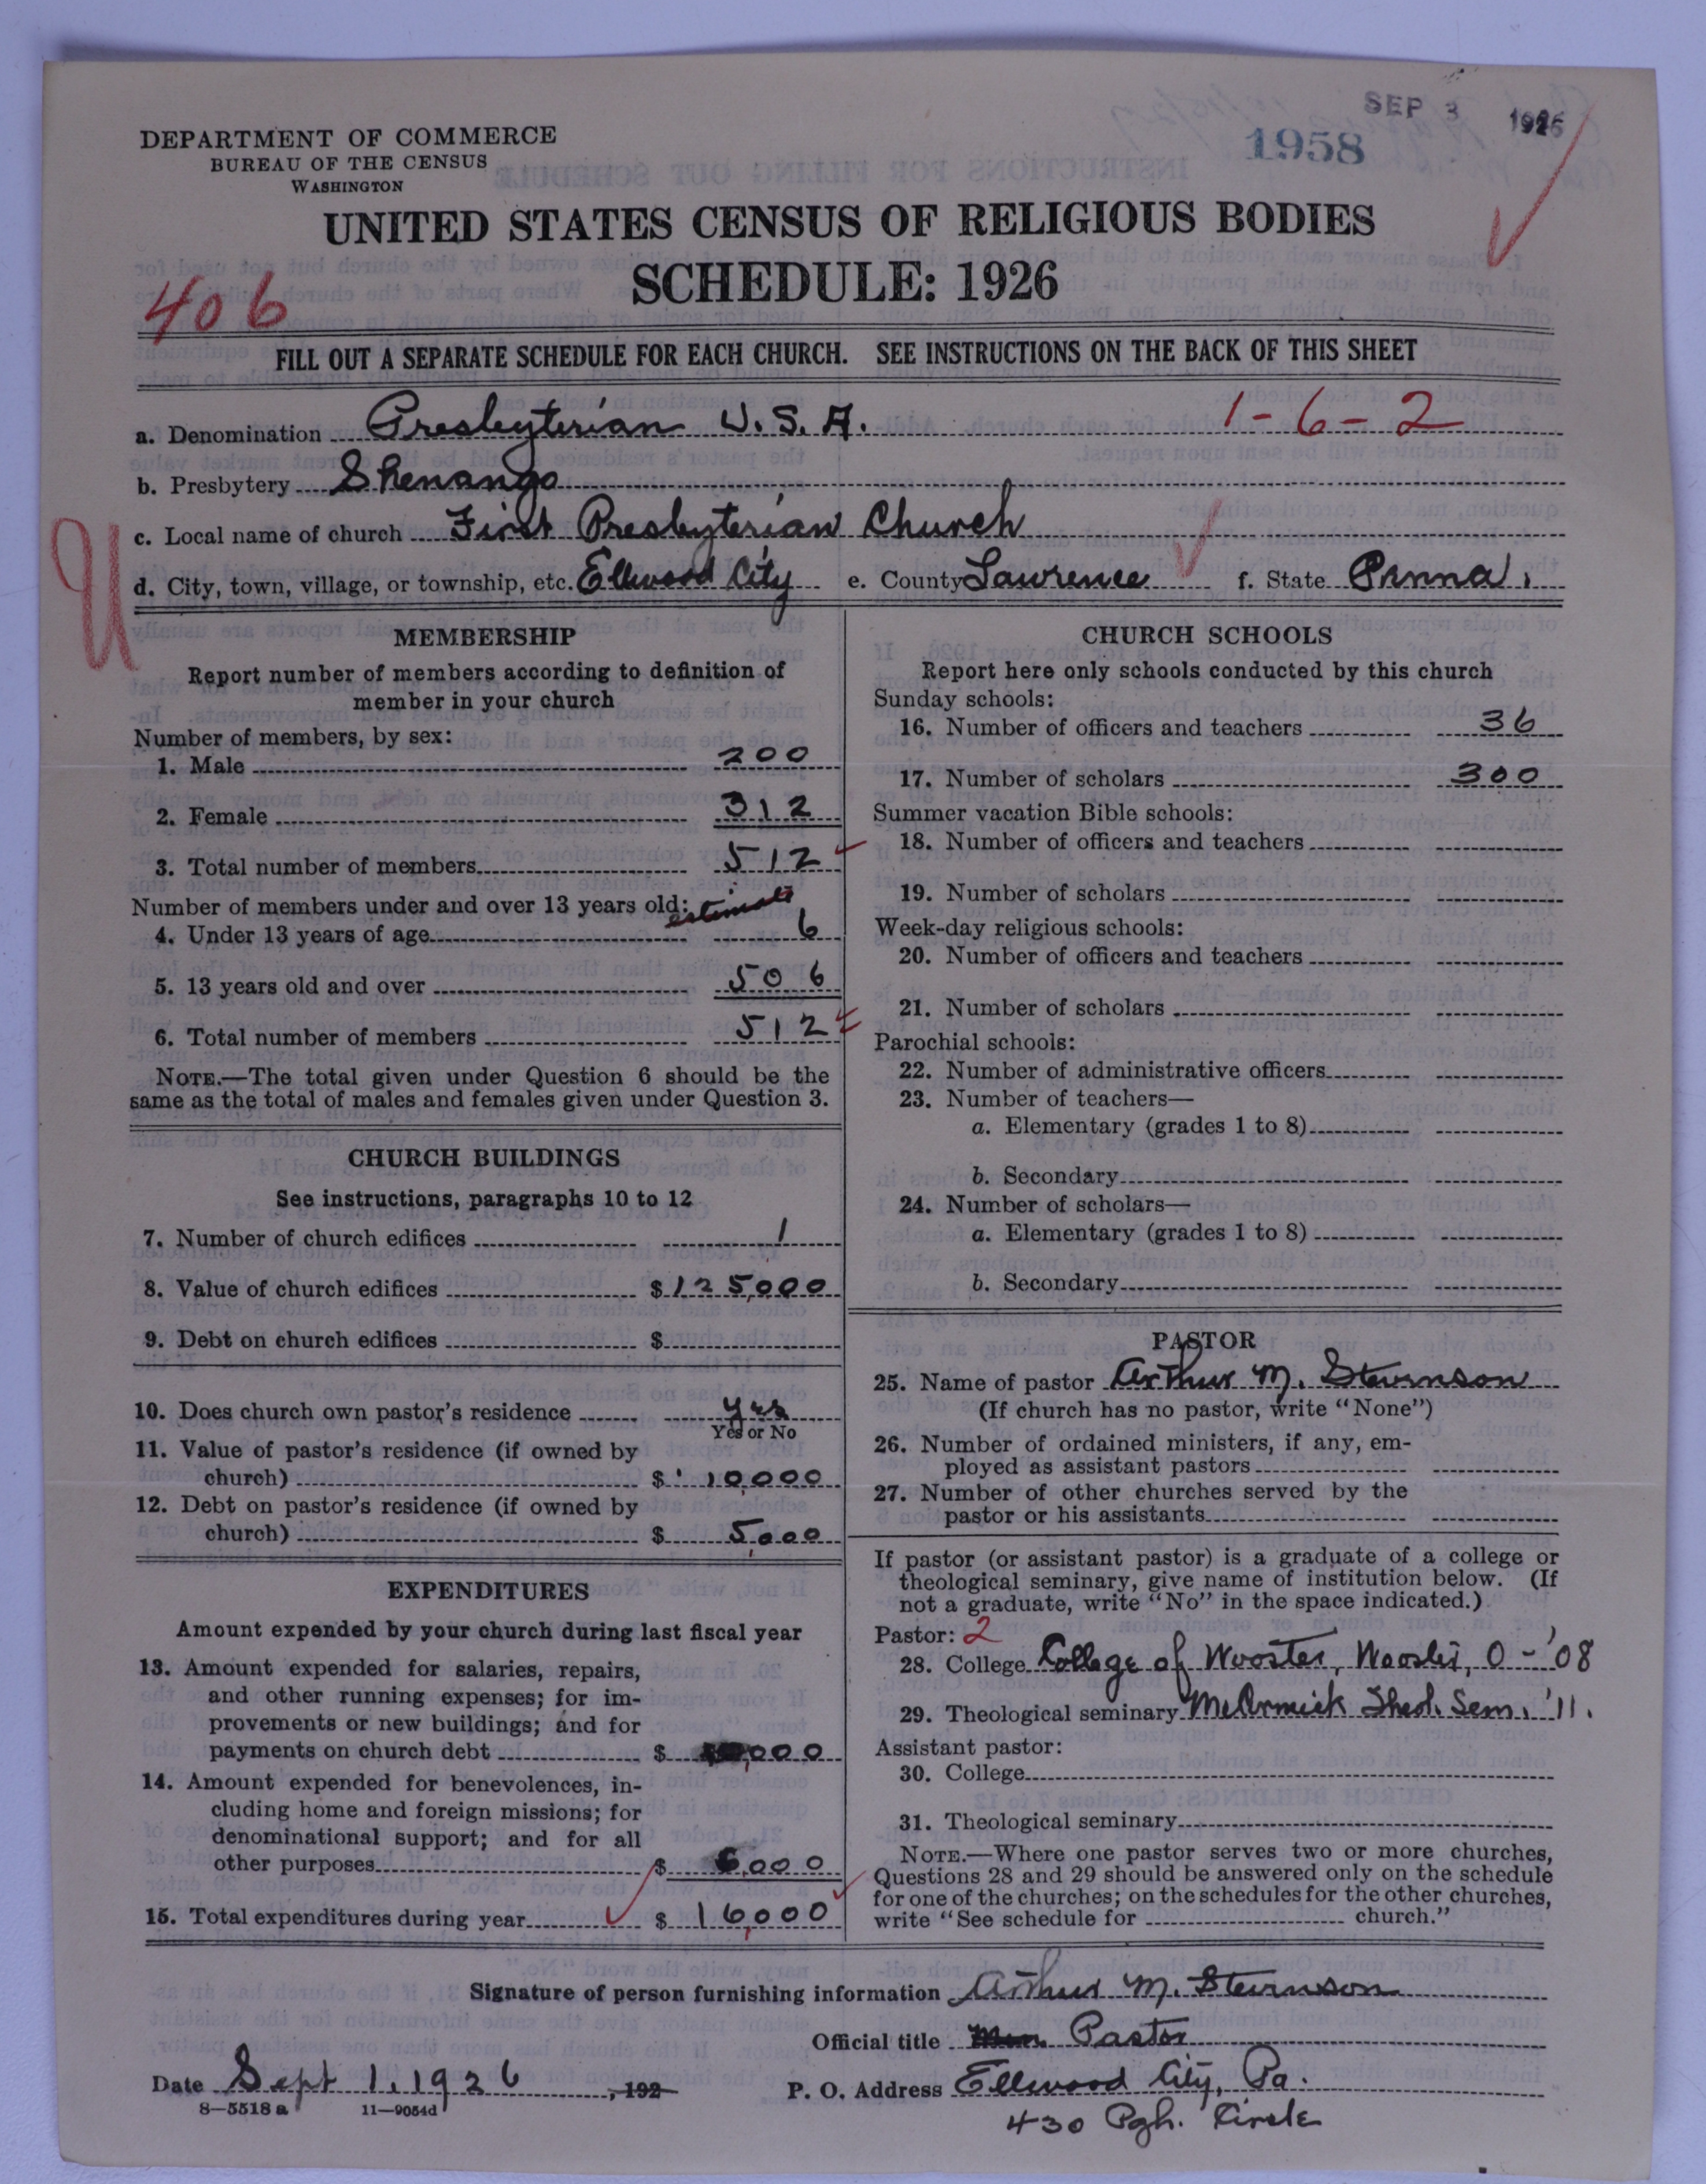 SEP 3 1926
1958
DEPARTMENT OF COMMERCE
BUREAU OF THE CENSUS
WASHINGTON
UNITED STATES CENSUS OF RELIGIOUS BODIES
SCHEDULE: 1926
406
FILL OUT A SEPARATE SCHEDULE FOR EACH CHURCH. SEE INSTRUCTIONS ON THE BACK OF THIS SHEET
a. Denomination Presbyterian U.S.A. 1-6-2
b. Presbytery Shenango
c. Local name of church First Presbyterian Church
U
d. City, town, village, or township, etc. Ellwood City e. County Lawrence f. State Penna.
MEMBERSHIP
Report number of members according to definition of
member in your church
Number of members, by sex:
1. Male 200
2. Female 312
3. Total number of members 512
Number of members under and over 13 years old: estimate
4. Under 13 years of age 6
5. 13 years old and over 506
6. Total number of members 512
NOTE.—The total given under Question 6 should be the
same as the total of males and females given under Question 3.
CHURCH BUILDINGS
See instructions, paragraphs 10 to 12
7. Number of church edifices 1
8. Value of church edifices $125,000
9. Debt on church edifices $
10. Does church own pastor's residence yes
Yes or No
11. Value of pastor's residence (if owned by
church) $10,000
12. Debt on pastor's residence (if owned by
church) $5,000
EXPENDITURES
Amount expended by your church during last fiscal year
13. Amount expended for salaries, repairs,
and other running expenses; for im-
provements or new buildings; and for
payments on church debt $ 10,000
14. Amount expended for benevolences, in-
cluding home and foreign missions; for
denominational support; and for all
other purposes $ 6,000
15. Total expenditures during year $ 16,000
CHURCH SCHOOLS
Report here only schools conducted by this church
Sunday schools:
16. Number of officers and teachers 36
17. Number of scholars 300
Summer vacation Bible schools:
18. Number of officers and teachers
19. Number of scholars
Week-day religious schools:
20. Number of officers and teachers
21. Number of scholars
Parochial schools:
22. Number of administrative officers
23. Number of teachers—
a. Elementary (grades 1 to 8)
b. Secondary
24. Number of scholars—
a. Elementary (grades 1 to 8)
b. Secondary
PASTOR
25. Name of pastor Arthur M. Stevenson
(If church has no pastor, write "None")
26. Number of ordained ministers, if any, em-
ployed as assistant pastors
27. Number of other churches served by the
pastor or his assistants
If pastor (or assistant pastor) is a graduate of a college or
theological seminary, give name of institution below. (If
not a graduate, write "No" in the space indicated.)
Pastor: 2
28. College College of Wooster, Wooster, O - '08
29. Theological seminary McCormick Theol. Sem. '11.
Assistant pastor:
30. College
31. Theological seminary
NOTE.—Where one pastor serves two or more churches,
Questions 28 and 29 should be answered only on the schedule
for one of the churches; on the schedules for the other churches,
write "See schedule for church."
Signature of person furnishing information Arthur M. Stevenson
Official title Pastor
Date Sept 1, 1926, 192
P. O. Address Ellwood City, Pa.
8—5518 a 11—9054d
430 Pgh. Circle